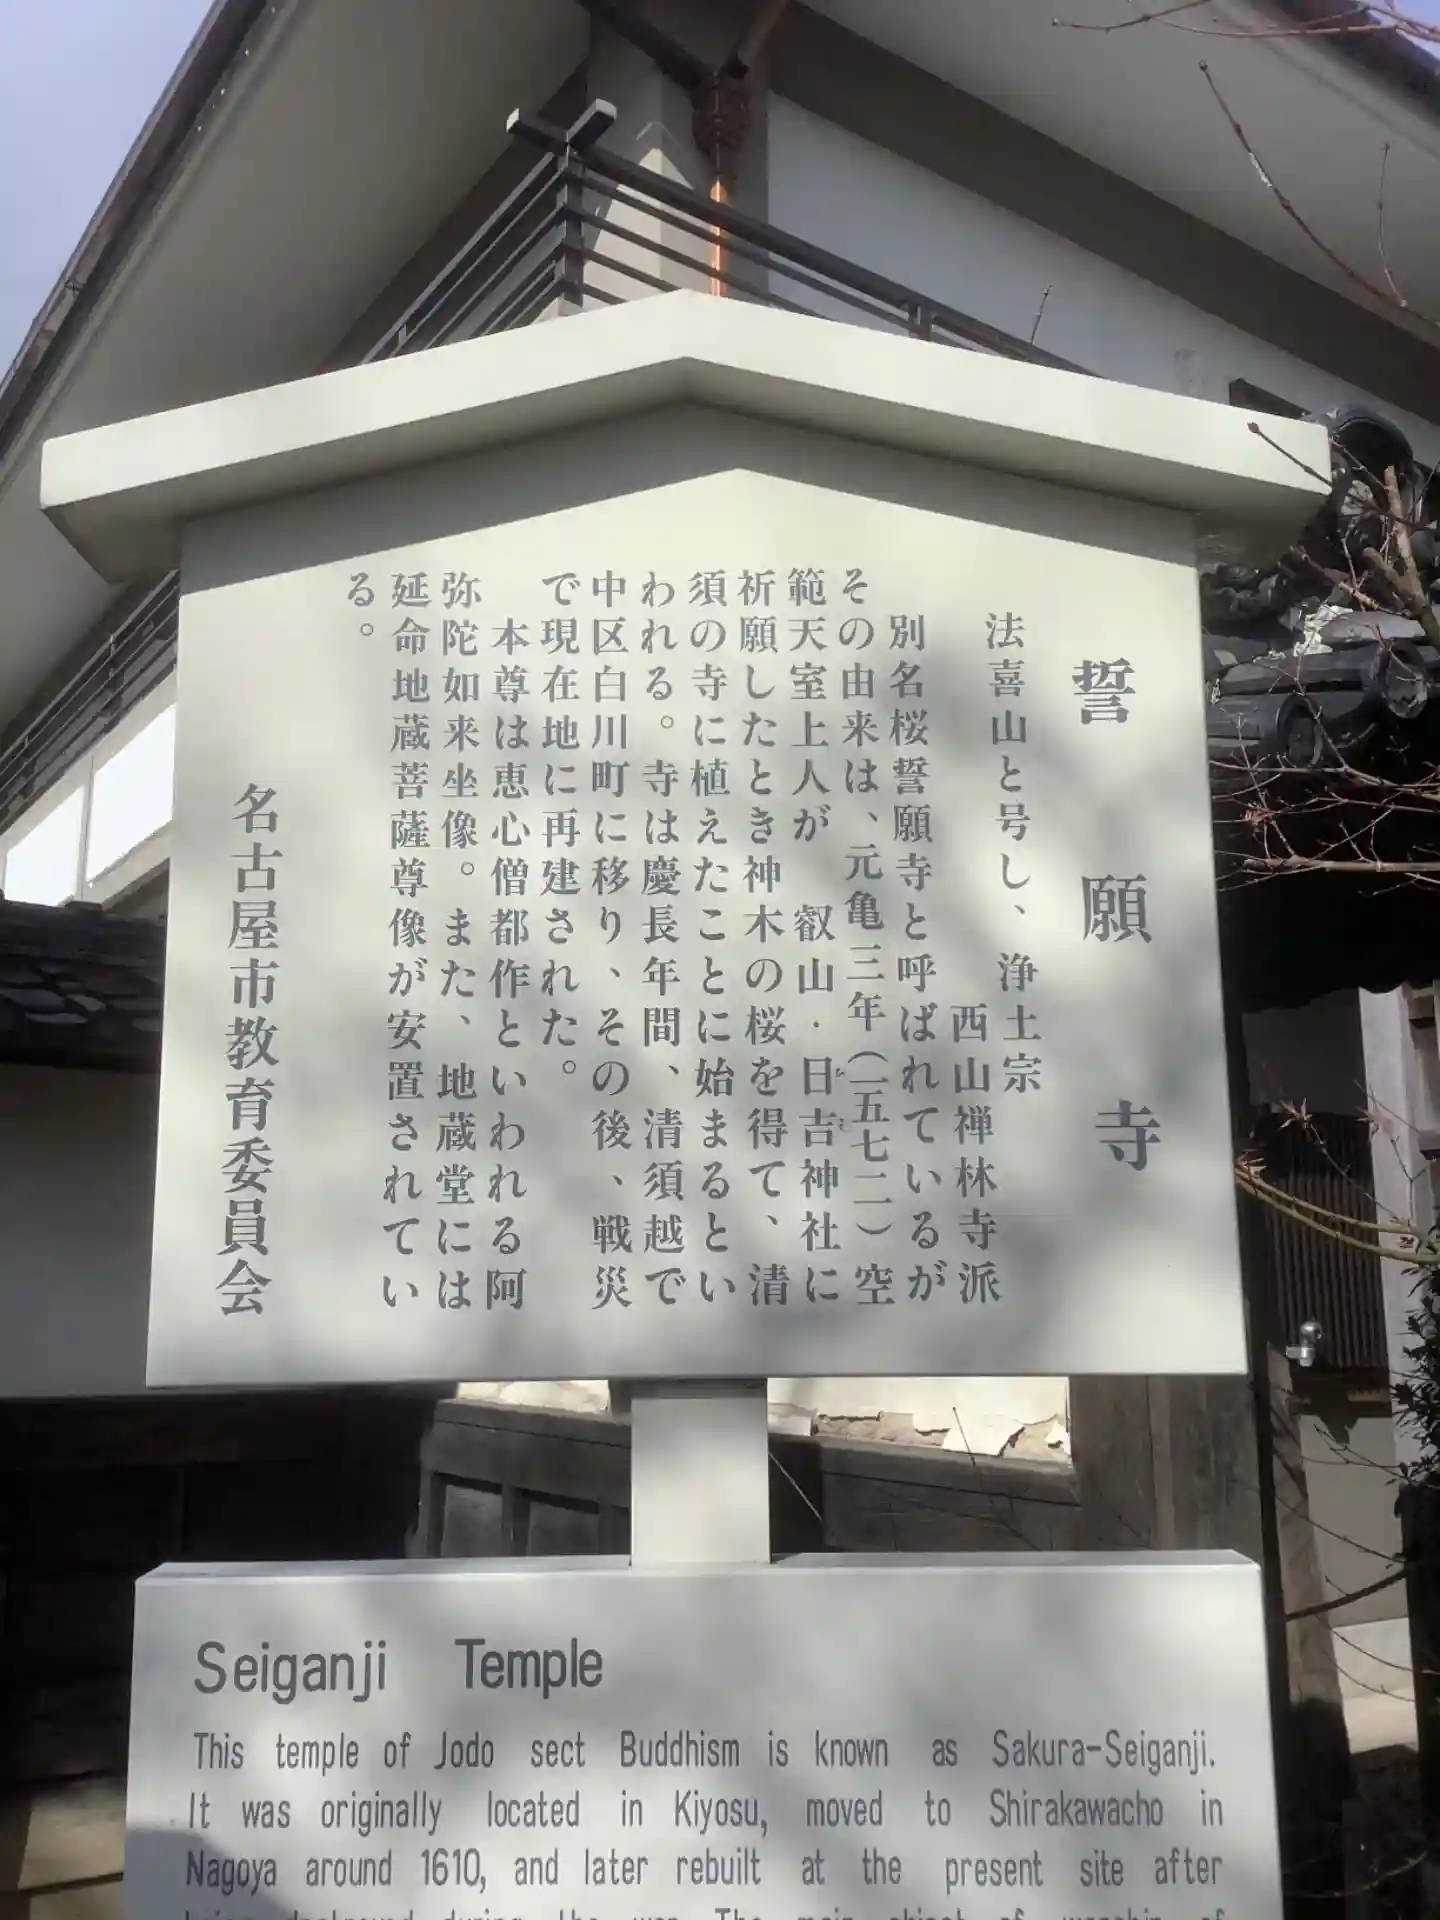 誓願寺
法喜山と号し、浄土宗
西山禅林寺派
別名桜誓願寺と呼ばれているが
その由来は、元亀三年（一五七二）空
範天室上人が 叡山・日吉神社に
祈願したとき神木の桜を得て、清
須の寺に植えたことに始まるとい
われる。寺は慶長年間、清須越で
中区白川町に移り、その後、戦災
で現在地に再建された。
本尊は恵心僧都作といわれる阿
弥陀如来坐像。また、地蔵堂には
延命地蔵菩薩尊像が安置されてい
る。
名古屋市教育委員会
Seiganji Temple
This temple of Jodo sect Buddhism is known as Sakura-Seiganji.
It was originally located in Kiyosu, moved to Shirakawacho in
Nagoya around 1610, and later rebuilt at the present site after